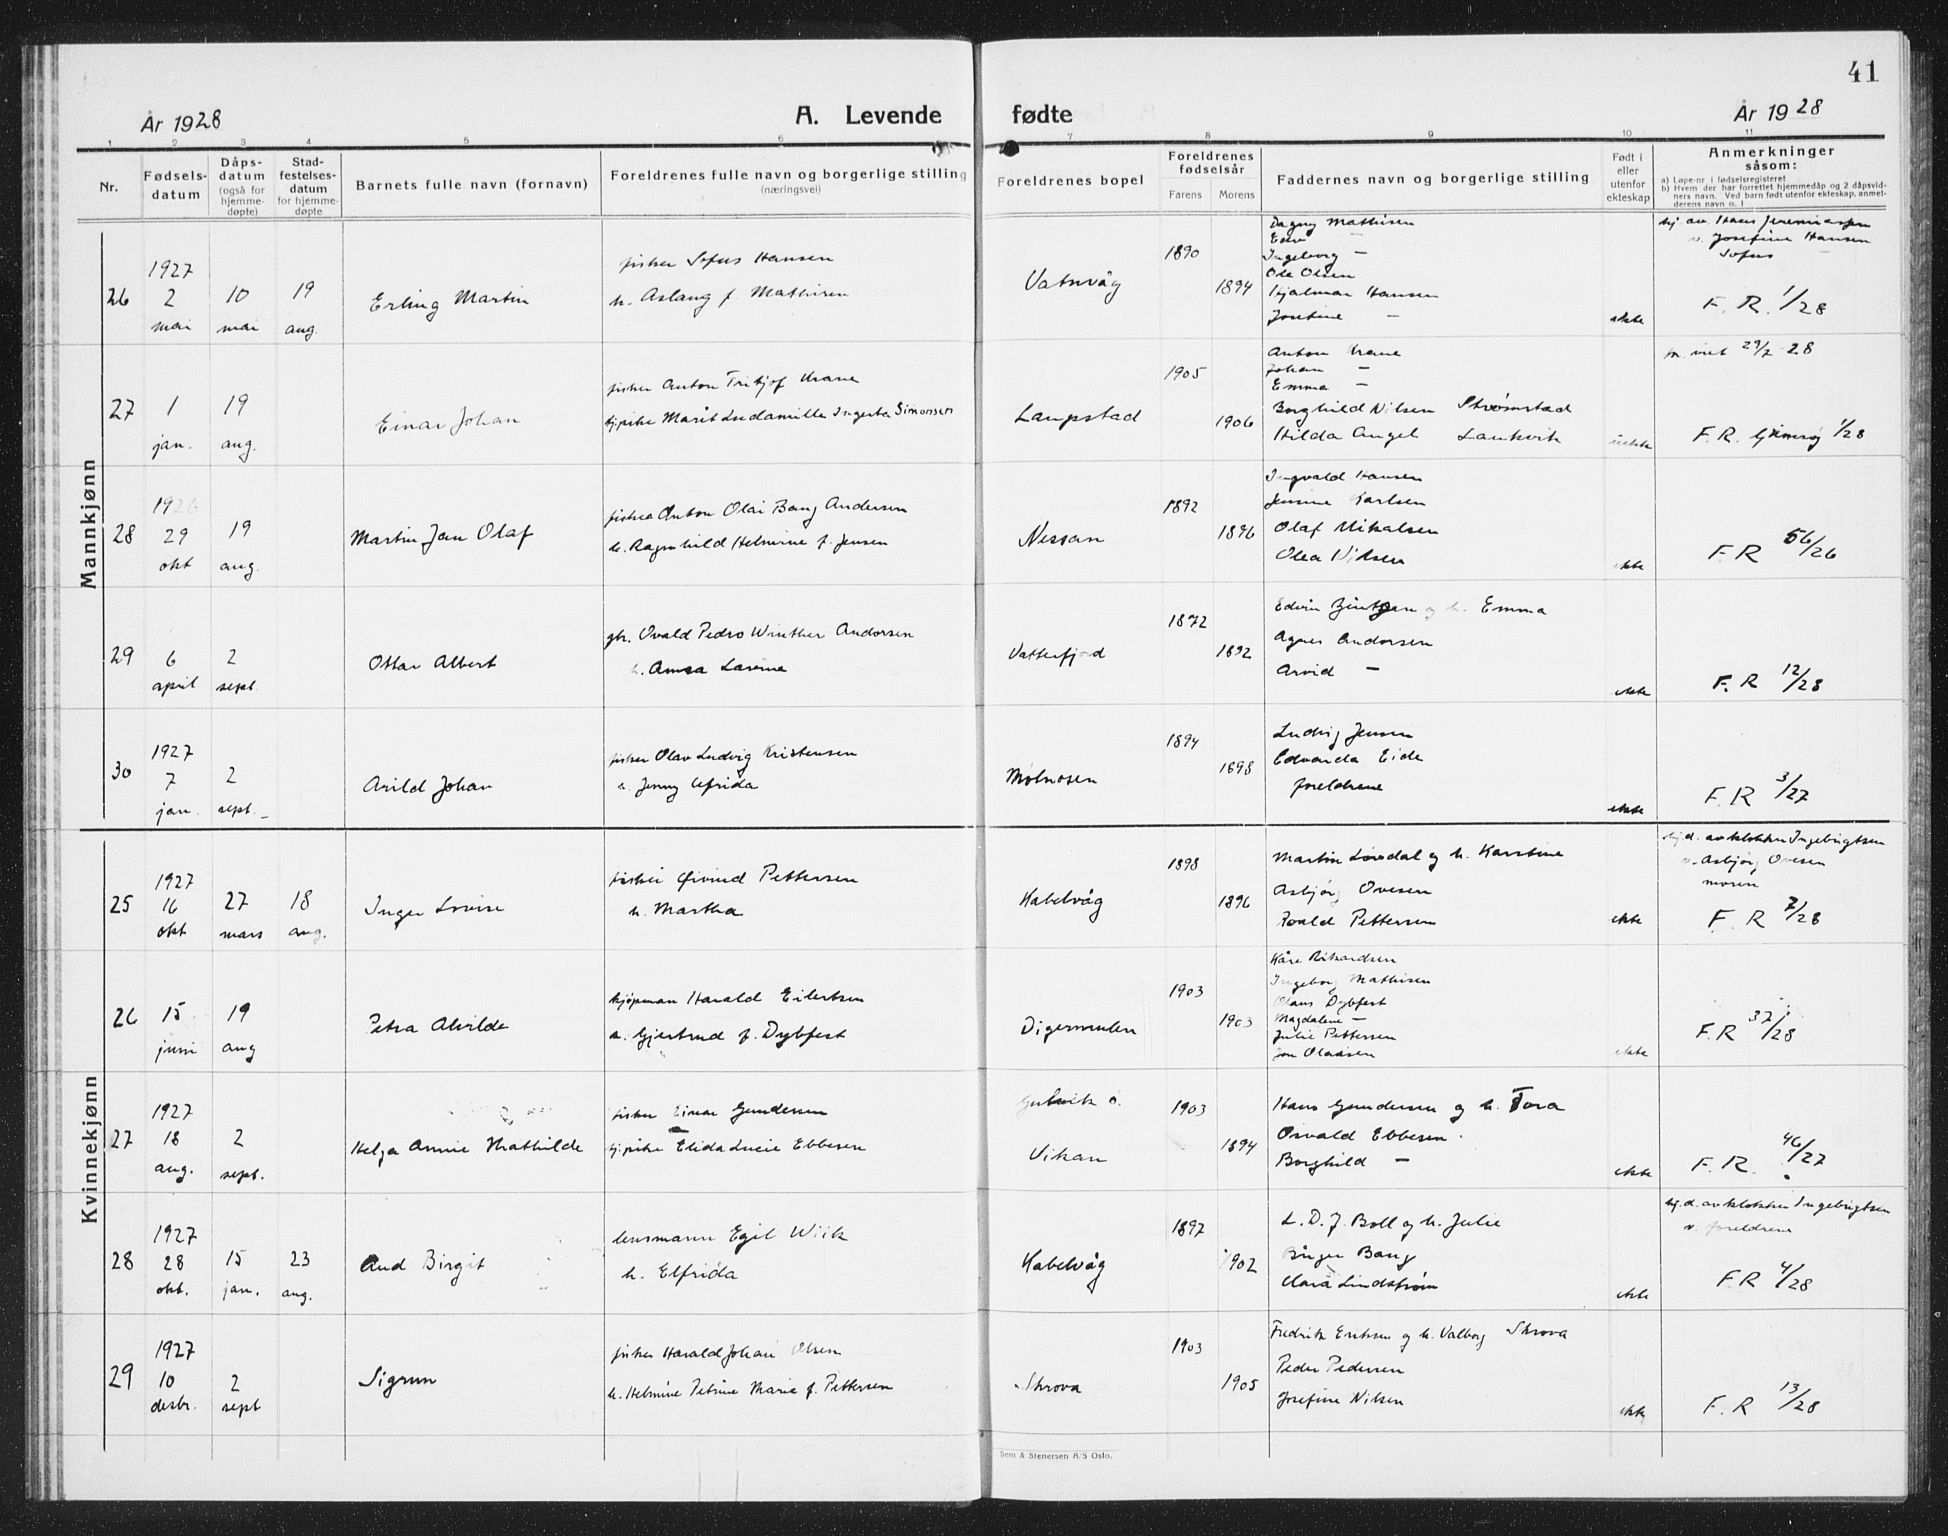 41
År 1928
A. Levende fødte
År 1928
1 2 3 4 5 6 7 8 9 10 11
Nr.
Fødsels-
datum
Dåps-
datum
(også for
hjemme-
døpte)
Stad-
festelses-
datum
for hjemme-
døpte
Barnets fulle navn (fornavn)
Foreldrenes fulle navn og borgerlige stilling
(næringsvei)
Foreldrenes bopel
Foreldrenes
fødselsår
Farens Morens
Faddernes navn og borgerlige stilling
Født i
eller
utenfor
ekteskap
Anmerkninger
såsom:
a) Løpe-nr i fødselsregisteret
b) Hvem der har forrettet hjemmedåp og 2 dåpsvid-
ners navn. Ved barn født utenfor ekteskap, anmel-
derens navn o. l.
Mannkjønn
26
1927
2
mai
10
mai
19
aug.
Erling Martin
fisker Sofus Hansen
h. Aslaug f. Mathisen
Vatnvåg
1890
1894
Dagny Mathisen
Ingeborg —
Ole Olsen
Hjalmar Hansen
Josefine —
ekte
hj. av. Hans Jeremiassen
v. Josefine Hansen
Sofus —
F. R. 1/28
27
1
jan.
19
aug.
Einar Johan
fisker Anton Fritjof Krane
pike Marit Ludamilla Ingerta Simonsen
Laupstad
1905
1906
Anton Krane
Johan —
Emma —
Borghild Nilsen Strømstad
Hilda Angel Laukvik
uekte
29/7 28
F. R. Gimsøy 1/28
28
1926
29
okt
19
aug.
Martin Jan Olaf
fisker Anton Olai Bang Andersen
h. Ragnhild Helmine f. Jensen
Nessan
1892
1896
Ingvald Hansen
Jensine Karlsen
Olaf Mikalsen
Olea Nilsen
ekte
F. R 56/26
29
6
april
2
sept.
Ottar Albert
gb. Ovald Pedro Winther Andorsen
h. Anna Lavine
Vatterfjord
1872
1892
Edvin Bentzen og h. Emma
Agnes Andorsen
Arvid —
ekte
F. R 12/28
30
1927
7
jan.
2
sept.
Arild Johan
fisker Olav Ludvig Kristensen
h. Jenny Alfrida
Molnosen
1894
1898
Ludvig Jensen
Edvarda Eide
foreldrene
ekte
F. R 3/27
Kvinnekjønn
25
1927
16
okt
27
mars
18
aug.
Inger Lovise
fisker Øivind Pettersen
h. Martha
Kabelvåg
1898
1896
Martin Lovdal og h. Karstine
Asbjørg Ovesen
Roald Pettersen
ekte
hj.d. av klokker Ingebrigtsen
v. Asbjørg Ovesen
moren
F. R 7/28
26
15
juni
19
aug
Petra Alvilde
kjøpman Harald Eilertsen
h. Gjertrud f. Dybfest
Digermulen
1903
1903
Kåre Rikardsen
Ingeborg Mathisen
Olaus Dybfest
Magdalene —
Julie Pettersen
Jon Olaisen
ekte
F. R 37/28
27
1927
18
aug.
2
sept.
Helga Annie Mathilde
fisker Einar Gundersen
pike Elida Lucie Ebbesen
Gulvik o.
Vikan
1903
1894
Hans Gundersen og h. Tora
Osvald Ebbesen
Borghild —
ekte
F. R. 46/27
28
1927
28
okt.
15
jan.
23
aug.
Aud Birgit
lensmann Egil Wiik
h. Elfrida
Kabelvåg
1897
1902
L. D. J. Boll og h. Julie
Birger Bang
Clara Lindstrøm
ekte
hj.d. av klokker Ingebrigtsen
v. foreldrene
F. R 4/28
29
1927
10
desbr.
2
sept
Sigrun
fisker Harald Johan Olsen
h. Helmine Petrine Marie f. Pettersen
Skrova
1903
1905
Fredrik Eriksen og h. Valborg Skrova
Peder Pedersen
Josefine Nilsen
ekte
F. R 13/28
Sem & Stenersen A/S Oslo.